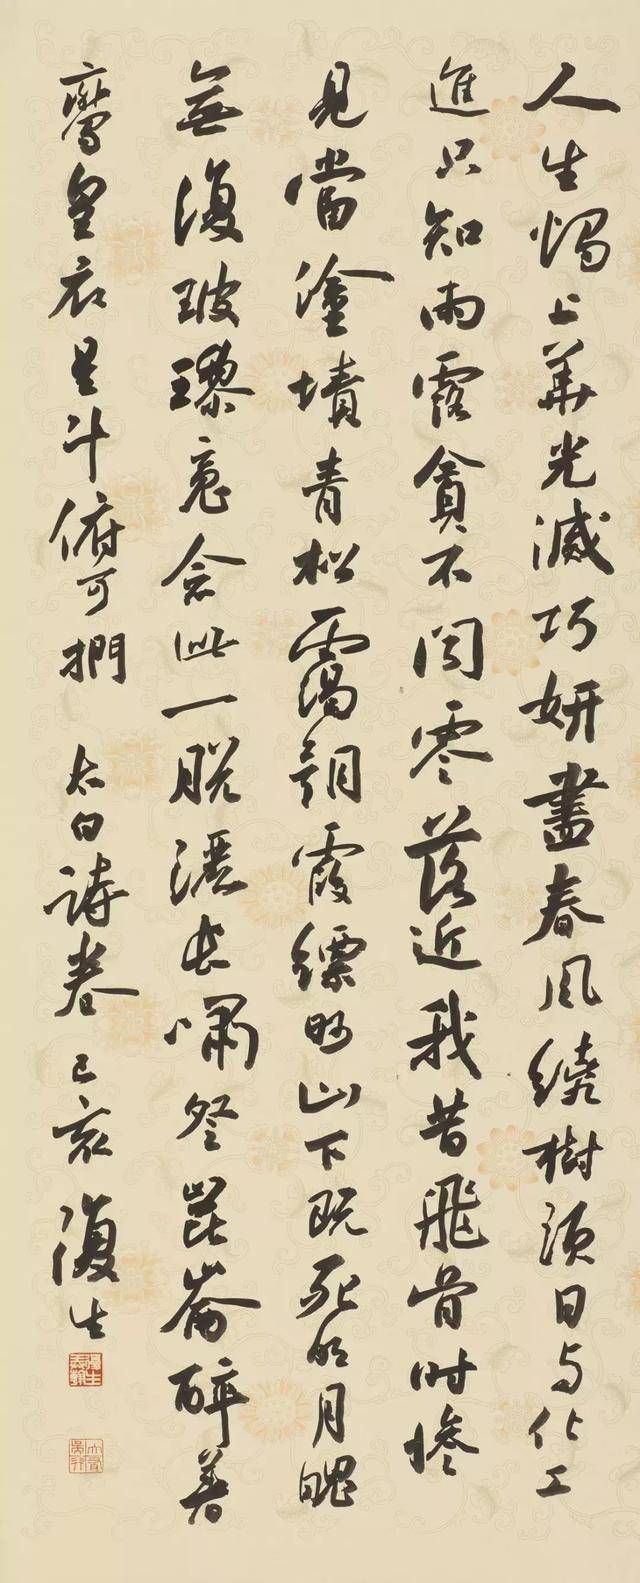 人生燭上華光滅巧妍盡春風繞樹頭日与化工
進只知雨露貪不聞零落近我昔飛骨時慘
見當塗墳青松靄朝霞縹眇山下既死明月魄
無復玻瓈魂念此一脫灑長嘯登崑崙醉著
鸞皇衣星斗俯可捫 太白詩卷 己亥 復生